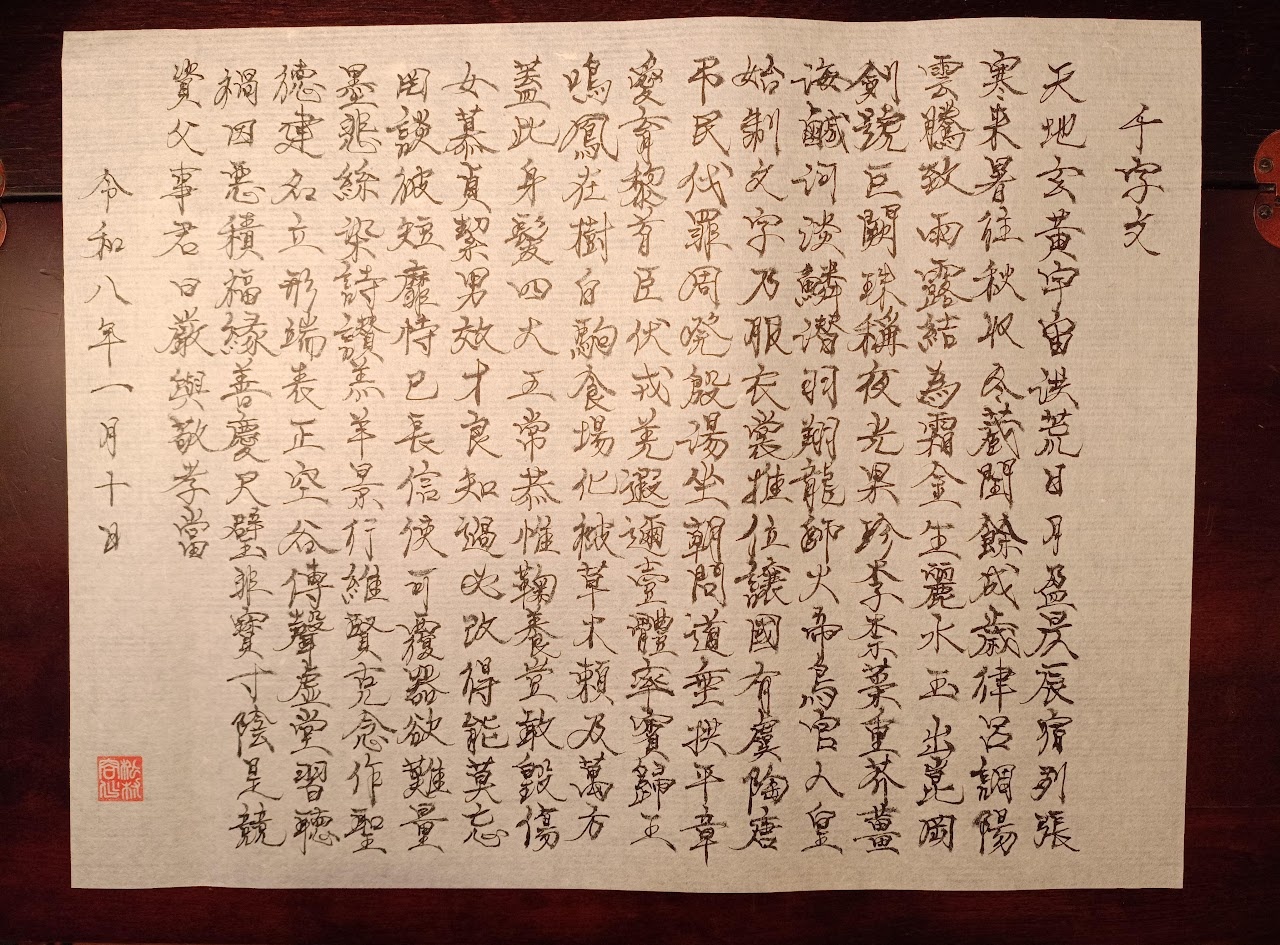 千字文
天地玄黃宇宙洪荒日月盈昃辰宿列張
寒来暑往秋收冬蔵閏餘成歲律呂調陽
雲騰致雨露結為霜金生麗水玉出崑岡
劍號巨闕珠稱夜光果珍李柰菜重芥薑
海鹹河淡鱗潛羽翔龍師火帝鳥官人皇
始制文字乃服衣裳推位讓國有虞陶唐
吊民伐罪周發殷湯坐朝問道垂拱平章
愛育黎首臣伏戎羌遐邇壹體率賓歸王
鳴鳳在樹白駒食場化被草木賴及萬方
蓋此身髮四大五常恭惟鞠養豈敢毀傷
女慕貞絜男效才良知過必改得能莫忘
罔談彼短靡恃己長信使可覆器欲難量
墨悲絲染詩讚羔羊景行維賢克念作聖
德建名立形端表正空谷傳聲虛堂習聽
禍因惡積福緣善慶尺璧非寶寸陰是競
資父事君曰嚴與敬孝當
令和八年一月十日